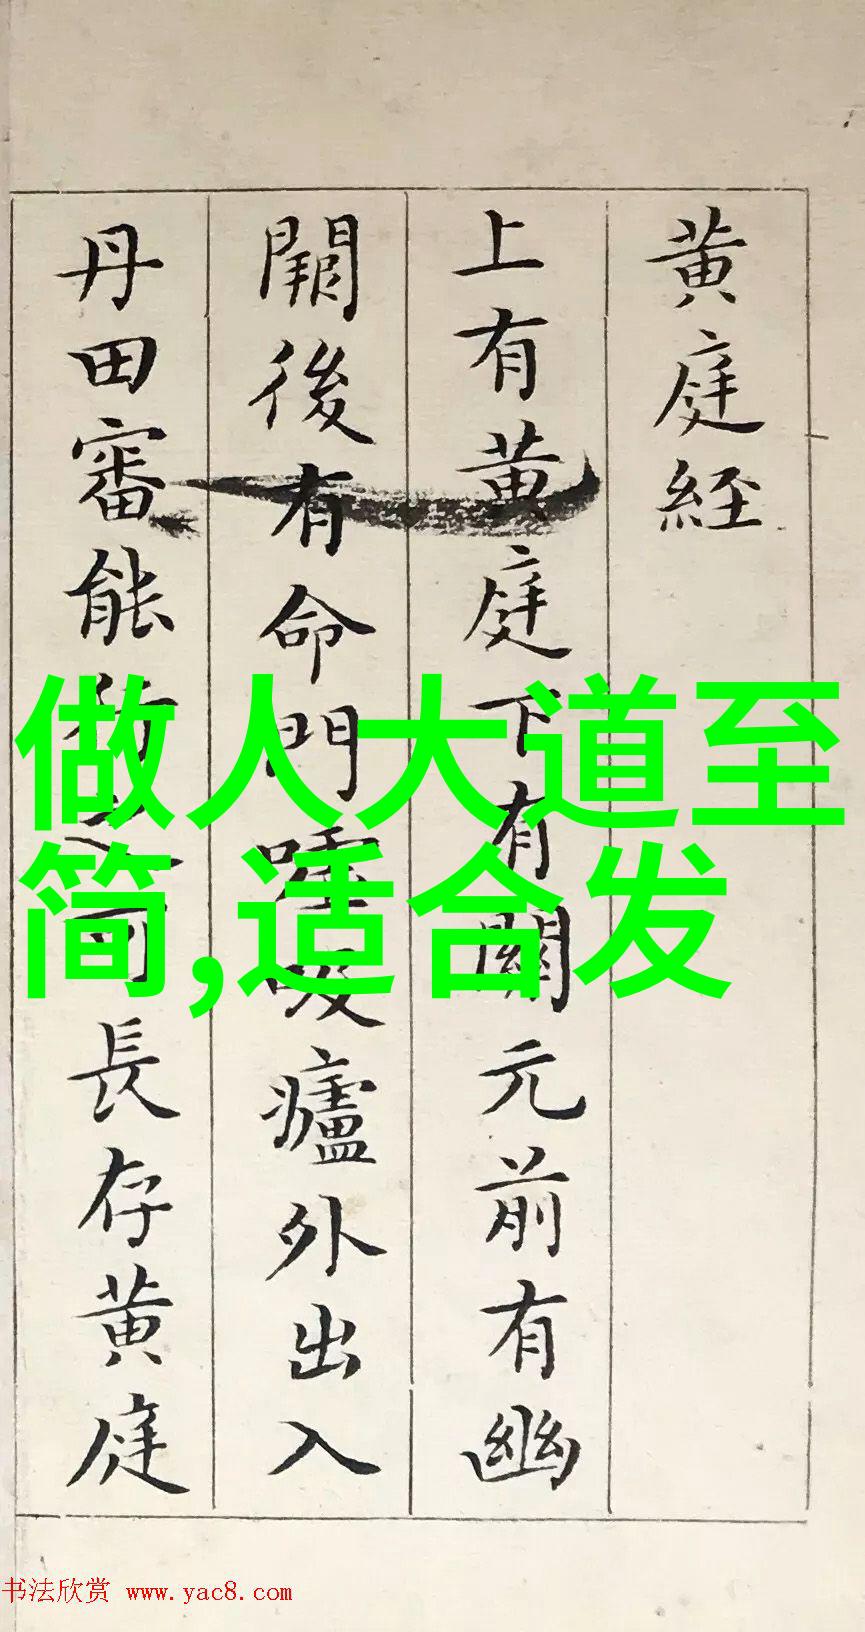 黄庭経
上有黄庭下有關元前有幽
闕後有命門嘘吸廬外出入
丹田審能行之可長存黄庭
做人大道至
简,适合发
书法欣赏 www.yac8.com